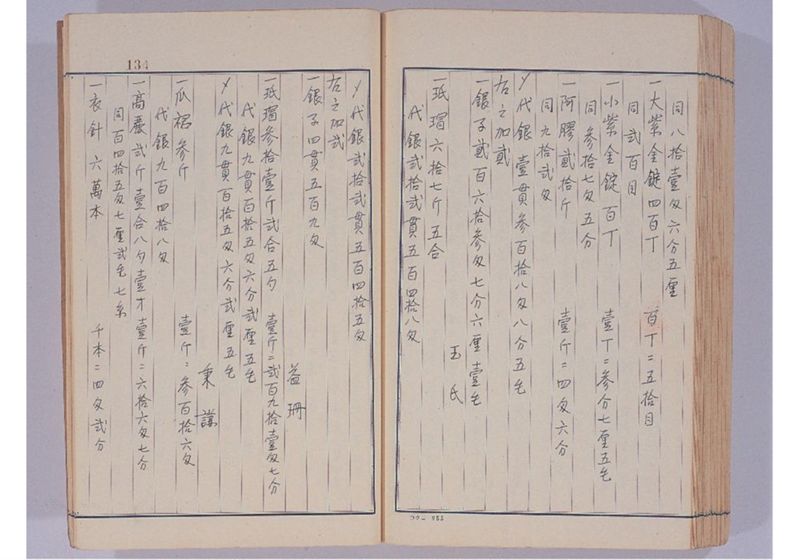 同八拾壹匁六分五厘
一大紫金錠四百丁　百丁ニ五拾目
同弐百目
一小紫金錠百丁　壹丁ニ参分七厘五毛
同参拾七匁五分
一阿膠弐拾斤　壹斤ニ四匁六分
同九拾弐匁
〆代銀壹貫参百拾八匁八分五毛
右之加貳
一銀子貳百六拾参匁七分六厘壹毛
王氏
玳瑁六拾七斤五合
代銀弐拾弐貫五百四拾八匁
〆代銀弐拾弐貫五百四拾五匁
右之加弐
一銀子四貫五百九匁
益珊
一玳瑁参拾壹斤弐合五勺　壹斤ニ弐百九拾壹匁七分
代銀九貫百拾五匁六分弐厘五毛
〆代銀九貫百拾五匁六分弐厘五毛
東謙
一瓜裙参斤　壹斤ニ参百拾六匁
代銀九百四拾八匁
一高麗弐斤壹合八勺壹才　壹斤ニ六拾六匁七分
同百四拾五匁七厘弐毛七糸
一衣針六萬本　千本ニ四匁弐分
134